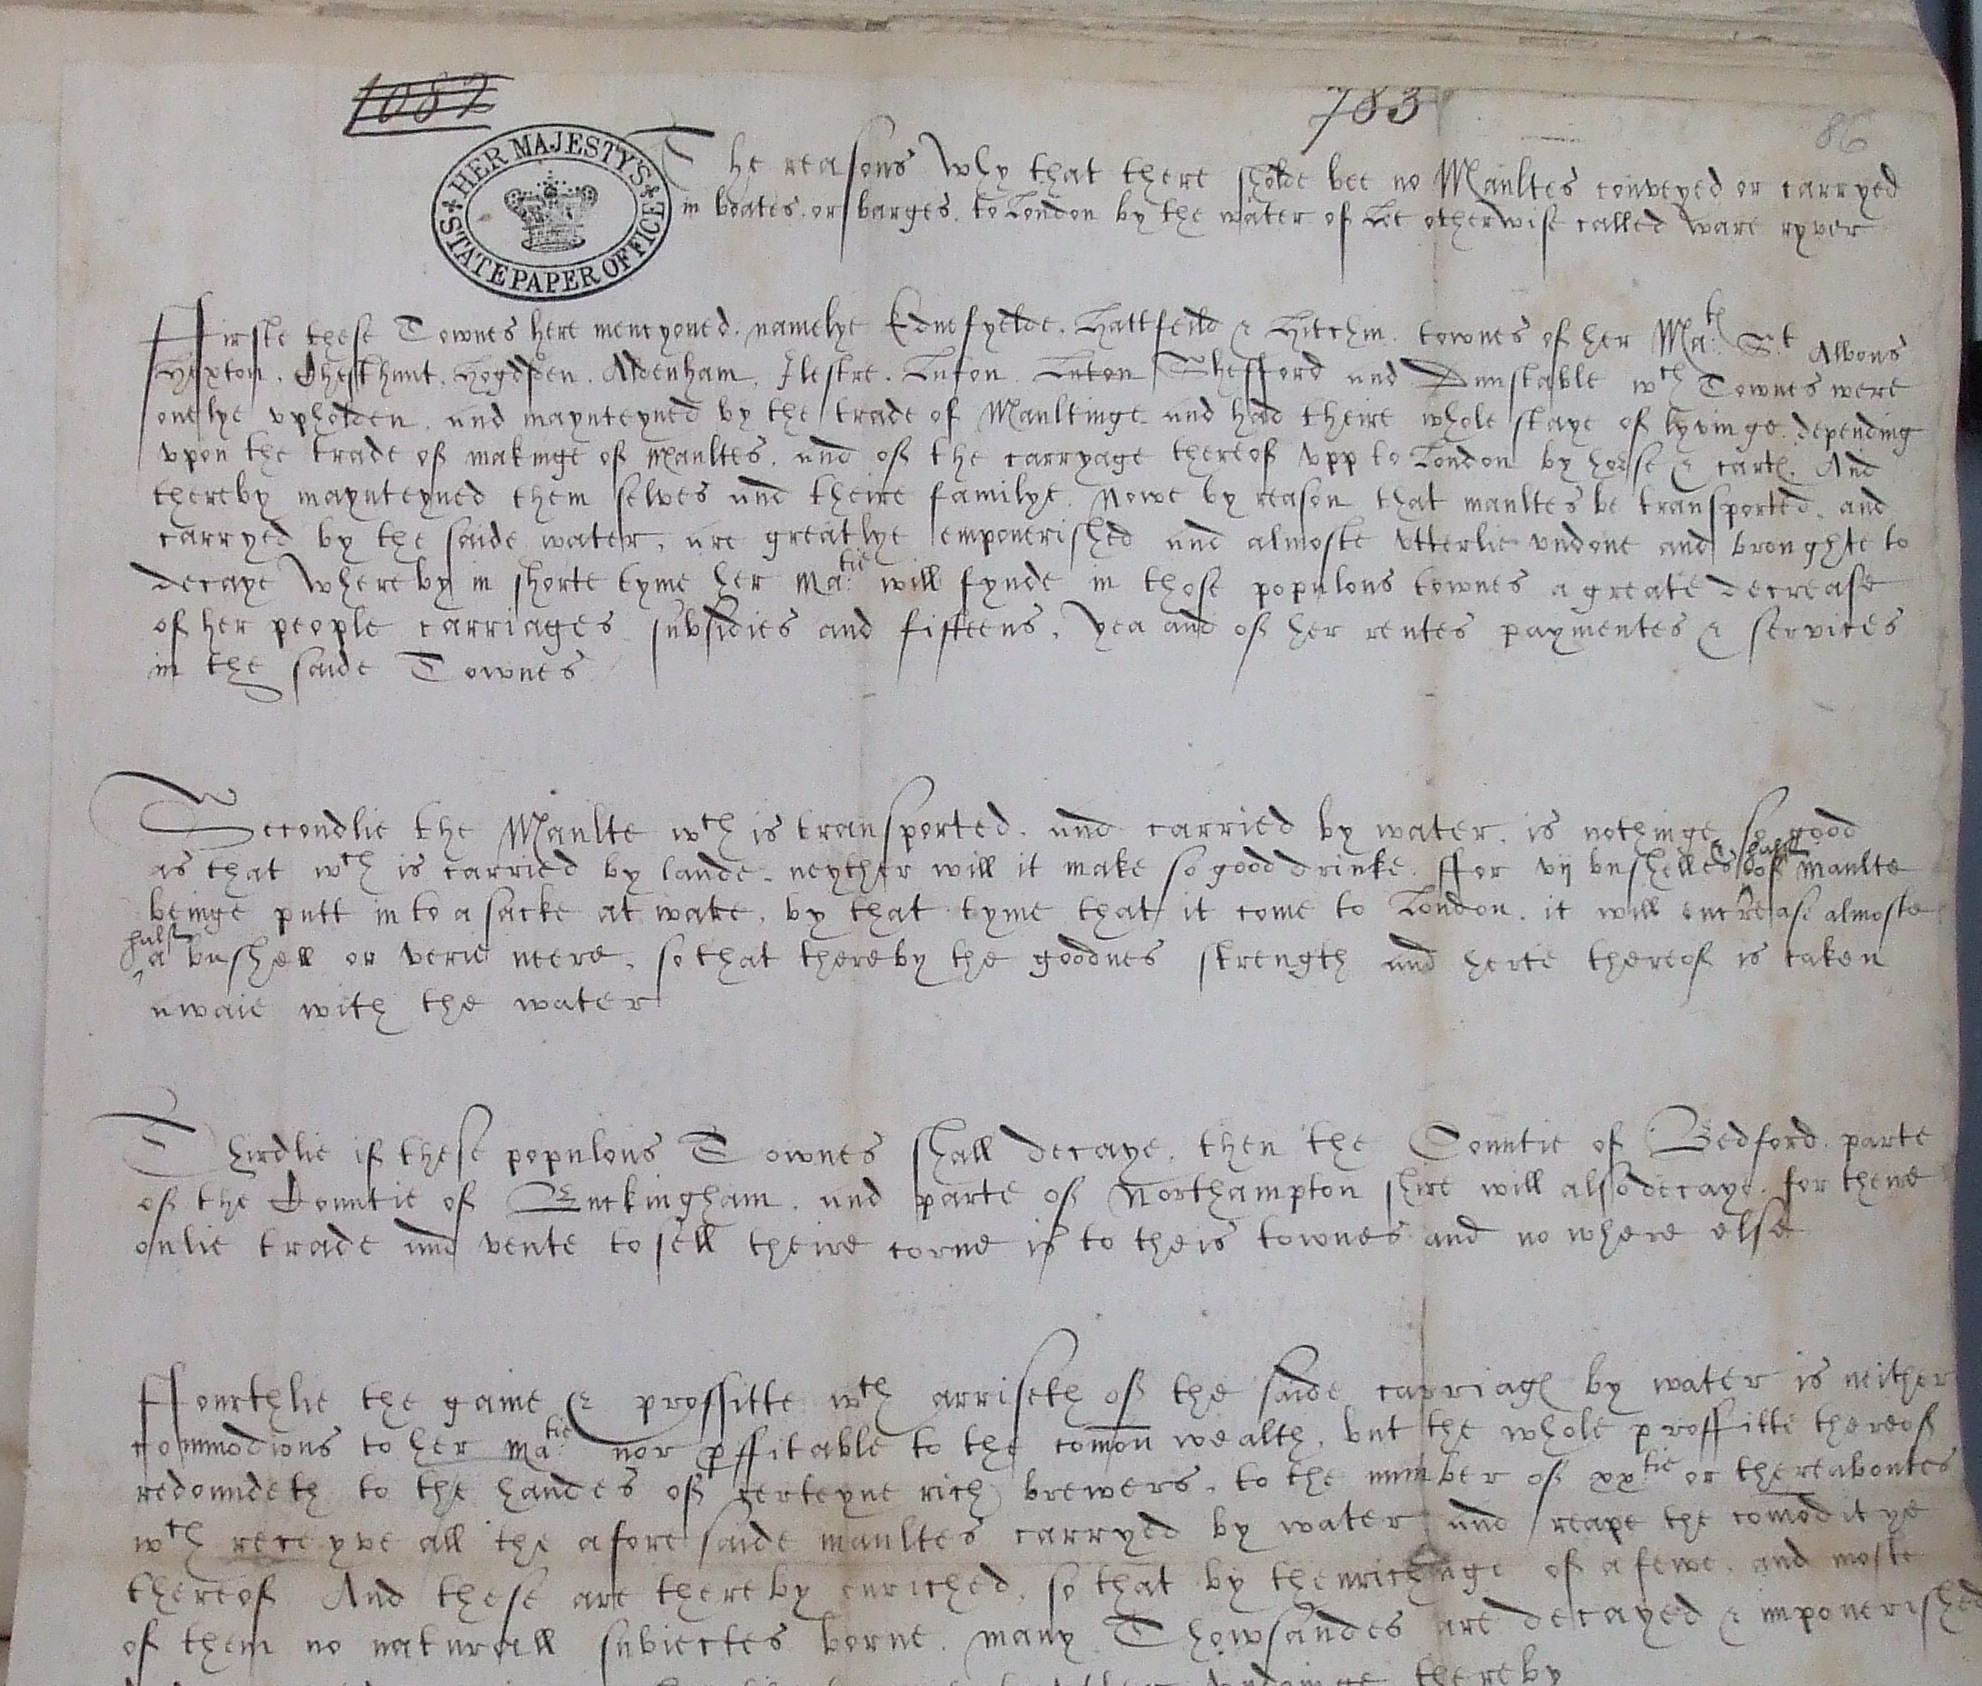 1082
783
86
HER MAJESTY'S STATE PAPER OFFICE
The reasons why that there sholde bee no Maultes conveyed or carryed
in boates or barges to London by the water of Lee otherwise called ware ryver
Firste these Townes here mencyoned namelye Ednefyelde, Hattfeild & Hitchin townes of her Ma:tie St Albons
Hexton, Chesthunt, Hogdsden, Aldenham, Ilestre, Luton Luton Shefford and Dunstable wch Townes were
onelye upholden and maynteyned by the trade of Maultinge and had theire whole staye of lyvinge depending
upon the trade of makinge of Maultes, and of the carryage thereof upp to London by horse & carte. And
thereby maynteyned them selves and theire familye. Nowe by reason that maultes be transported, and
carryed by the saide water, are greatlye empouerished and almoste utterlie undone and broughte to
decaye whereby in shorte tyme her Ma:tie will fynde in those populous townes a greate decrease
of her people carriages subsidies and fifteens, yea and of her rentes paymentes & services
in the saide Townes
Secondlie the Maulte wch is transported and carried by water, is nothinge so good
as that wch is carried by lande, neyther will it make so good drinke. ffor vij bushelles & half of maulte
beinge putt into a sacke at ware, by that tyme that it come to London, it will encrease almoste
half a bushell or verie neere, so that thereby the goodnes strength and herte thereof is taken
awaie with the water
Thirdlie if these populous Townes shall decaye, then the Countie of Bedford, parte
of the Countie of Buckingham, and parte of Northampton shire will also decaye, for there
onlie trade and vente to sell theire corne is to theis townes and no where else
Fourthlie the gaine & proffitte wch arriseth of the saide carriage by water is neither
commodious to her Ma:tie nor pffitable to the comon wealth, but the whole proffitte thereof
redoundeth to the handes of certeyne rich brewers, to the number of xxtie or thereaboutes
wch receyve all the afore saide maultes carryed by water and reape the comoditye
thereof And these are thereby enriched, so that by thenrichinge of a fewe, and moste
of them no naturall subiectes borne, many Thowsandes are decayed & impouerished
thereby